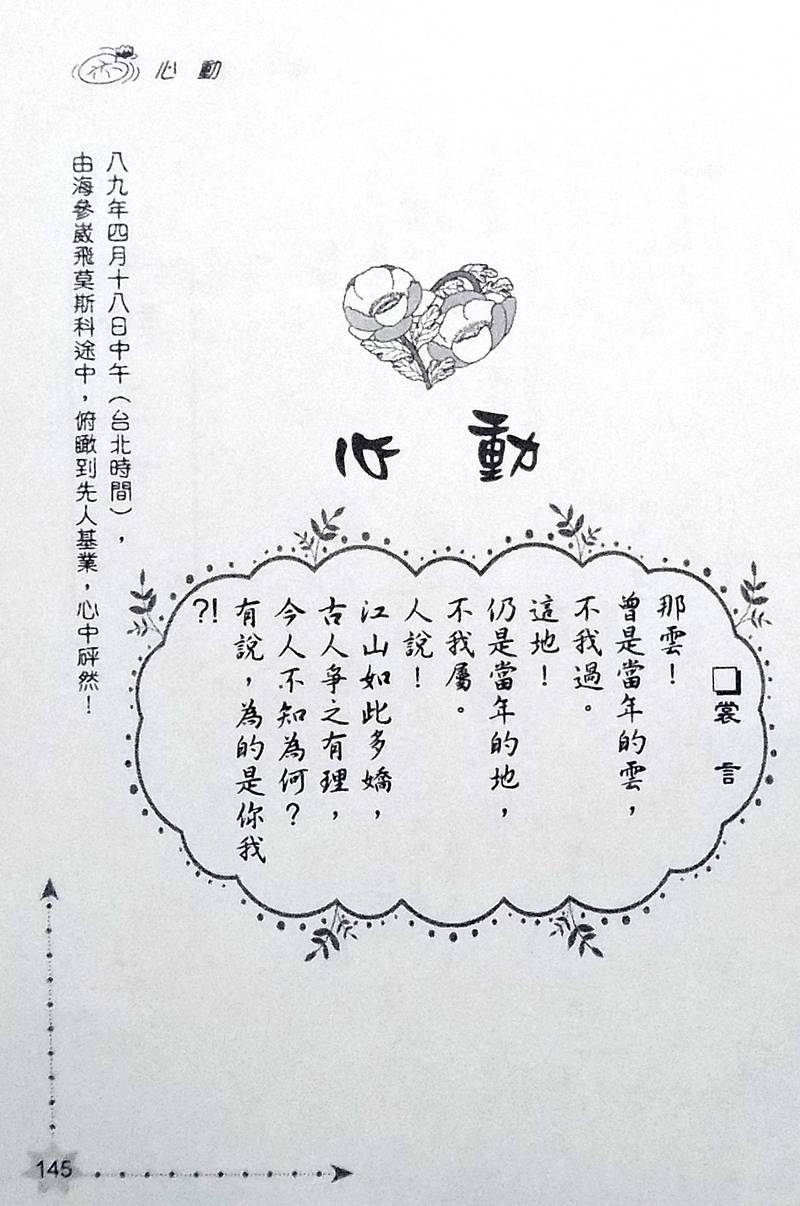 心動
心動
□裳言
那雲！
曾是當年的雲，
不我過。
這地！
仍是當年的地，
不我屬。
人說！
江山如此多嬌，
古人爭之有理，
今人不知為何？
有說，為的是你我
?!
八九年四月十八日中午（台北時間），
由海參崴飛莫斯科途中，俯瞰到先人基業，心中砰然！
145